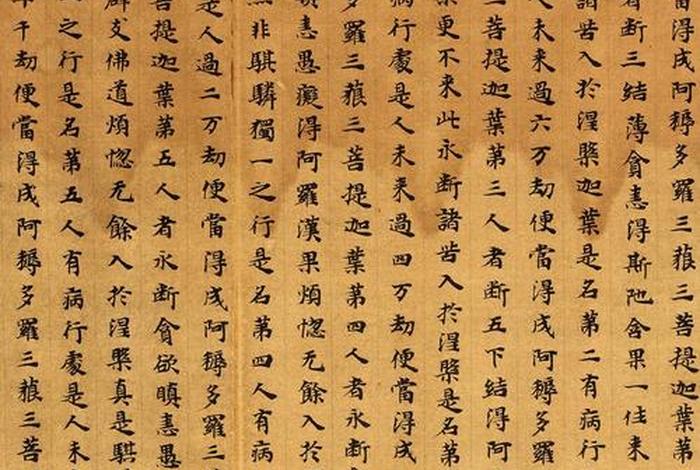 當得成阿耨多羅三藐三菩提迦葉第
者斷三結薄貪恚得斯陁含果一往来
諸苦入於涅槃迦葉是名第二有病行
人未来過六万劫便當得成阿耨多羅
三菩提迦葉第三人者断五下結得阿
果更不来此永断諸苦入於涅槃是名第
病行處是人未来過四万劫便當得成
多羅三藐三菩提迦葉第四人者永断
瞋恚愚癡得阿羅漢果煩惚无餘入於
非騏驎獨一之行是名第四人有病
是人過二万劫便當得成阿耨多羅三
菩提迦葉第五人者永断貪欲瞋恚愚
辟支佛道煩惚无餘入於涅槃真是騏
之行是名第五人有病行處是人未
千劫便當得成阿耨多羅三藐三菩